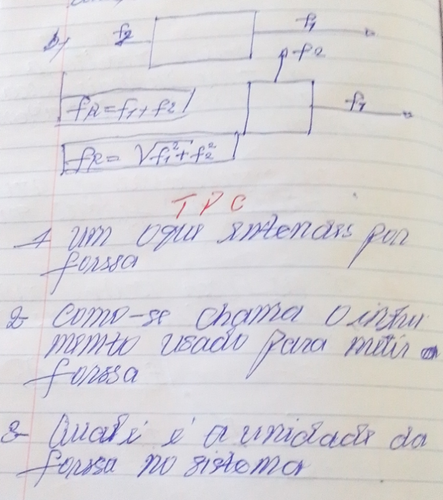 b)
f2 f1
f2
fR = f1 + f2 f1
fR = √f1² + f2²
TPC
1 um oque intendis por
forssa
2- Como-se chama o instru
mento usado para metir a
forssa
3- Quale é a unidade da
forssa no sistema